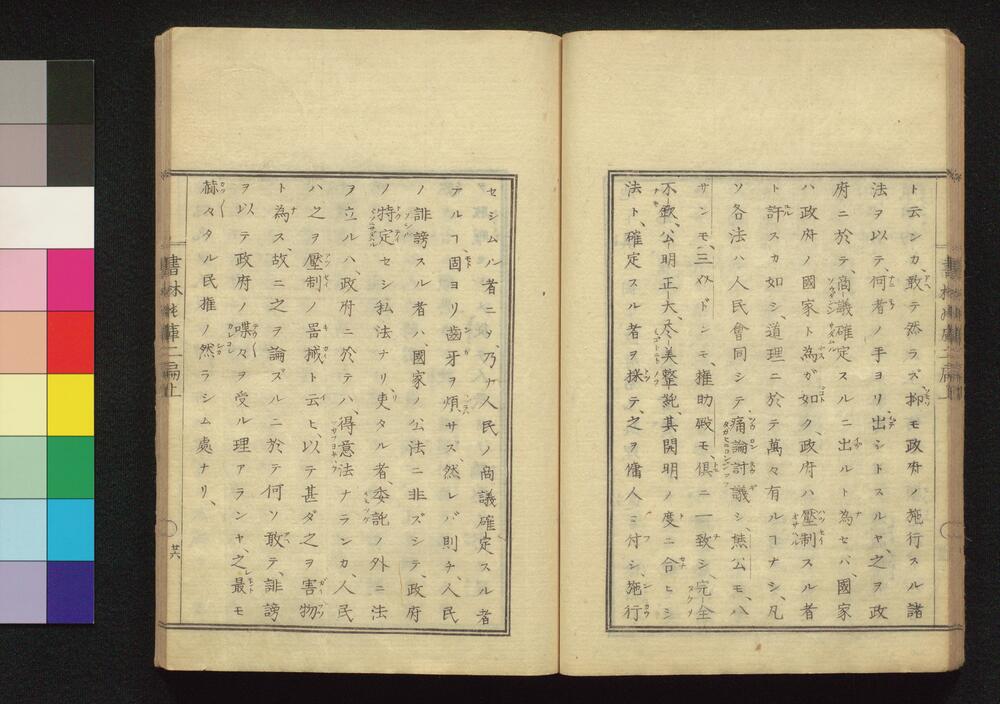 ト云ンカ敢テ然ラズ、抑モ政府ノ施行スル諸
法ヲ以テ、何者ノ手ヨリ出シトスルヤ、之ヲ政
府ニ於テ、商議確定スルニ出ルト為セバ、國家
ハ政府ノ國家ト為ガ如ク、政府ハ壓制スル者
ト許スカ如シ、道理ニ於テ萬々有ルヿナシ、凡
ソ各法ハ人民會同シテ、痛論討議シ、熊公モ、八
サンモ、三公ドンモ、権助殿モ、俱ニ一致シ、完全
不欹、公明正大、尽美整純、其開明ノ度ニ合ヒシ
法ト、確定スル者ヲ採テ、之ヲ傭人ニ付シ、施行
セシムル者ニヿ、乃ナ人民ノ商議確定スル者
タルヿ、固ヨリ齒牙ヲ煩サス、然レバ則チ、人民
ノ誹謗スル者ハ、國家ノ公法ニ非ズシテ、政府
ノ特定セシ私法ナリ、吏タル者、委託ノ外ニ法
ヲ立ルハ、政府ニ於テハ、得意法ナランカ、人民
ハ之ヲ壓制ノ噐械ト云ヒ、以テ甚ダ之ヲ害物
ト為ス、故ニ之ヲ論ズルニ於テ何ソ敢テ、誹謗
ヲ以テ政府ノ喋々ヲ受ル理アランヤ、之最モ
赫々タル民権ノ然ラシム處ナリ、
書林
二編上
廿六